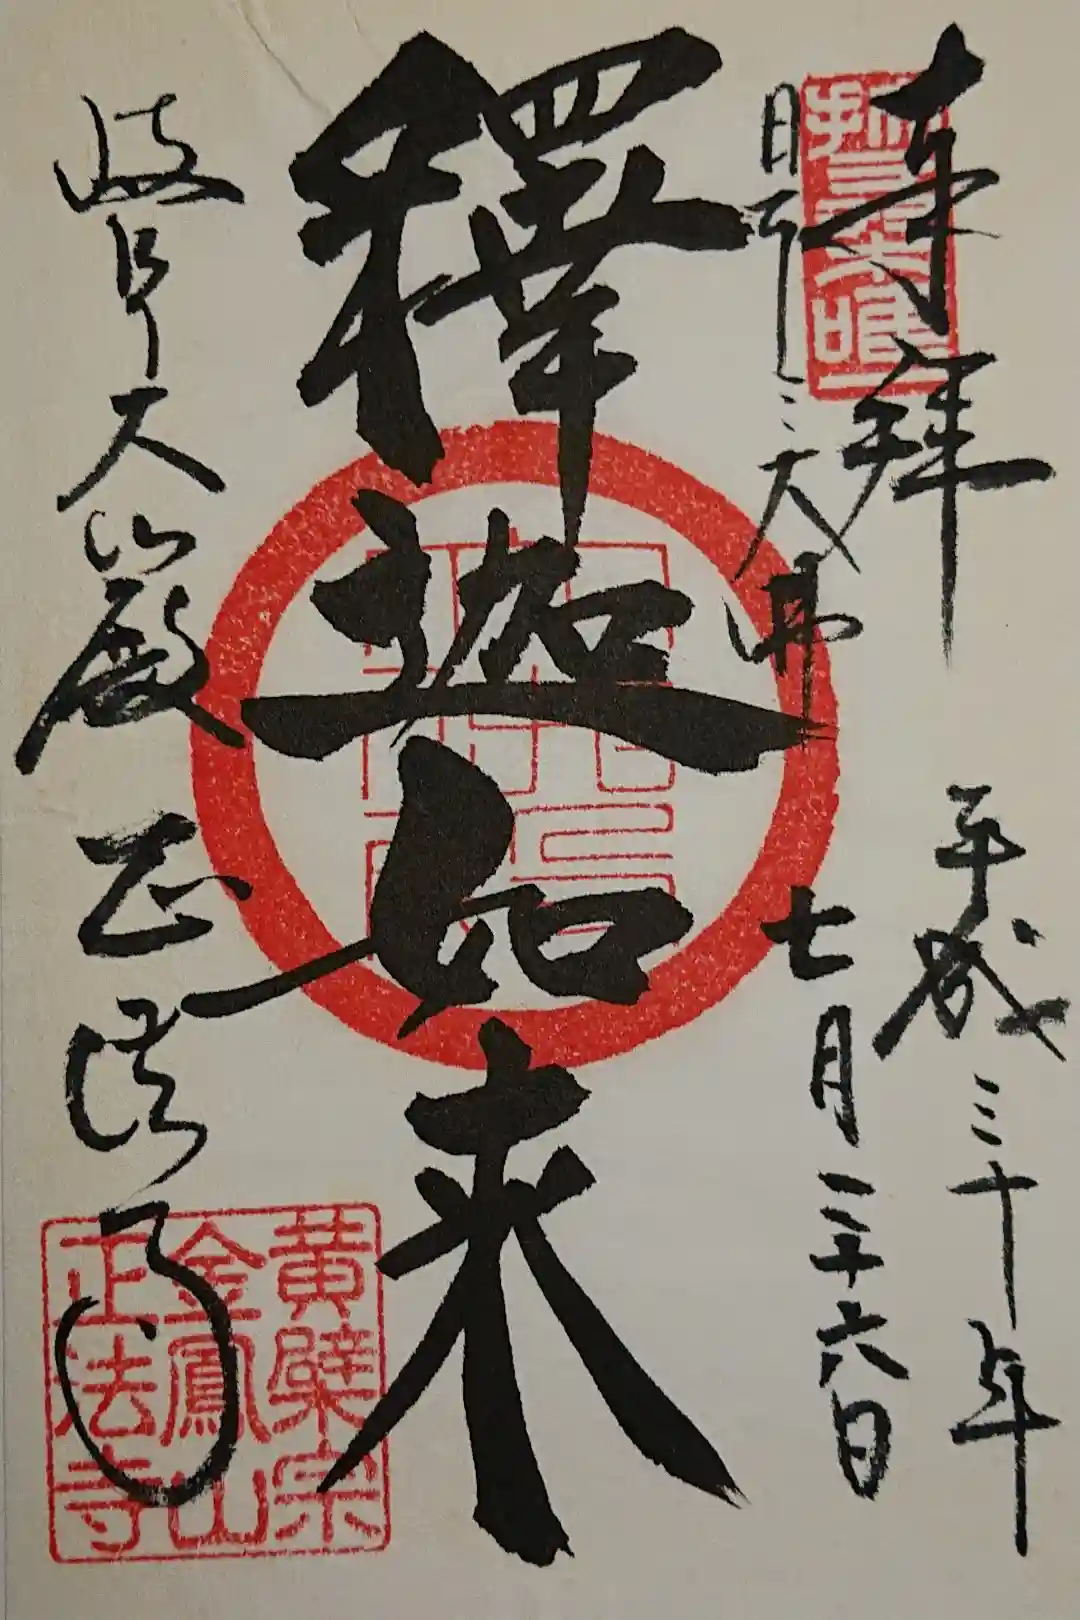 奉拝 平成三十年
日本三大佛 七月二十六日
釋迦如来
岐阜大仏殿 正法寺
黄檗宗
金鳳山
正法寺